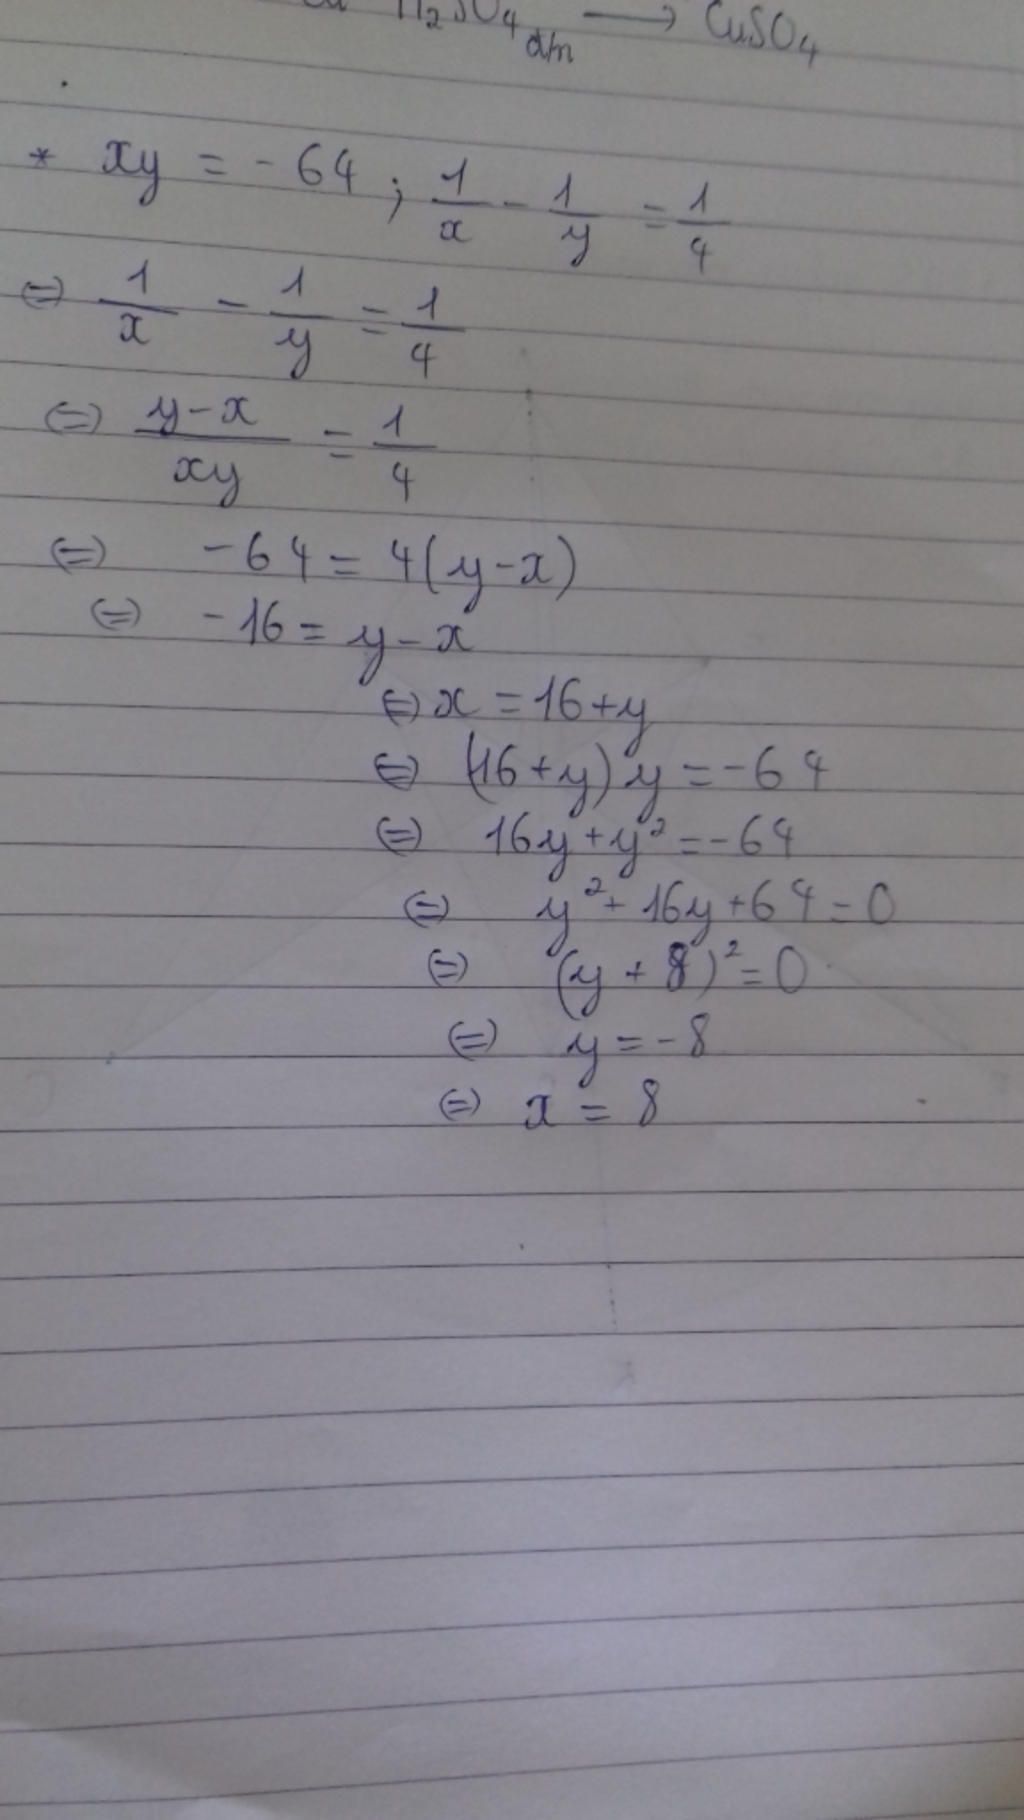 H₂SO₄ đ/n ⟶ CuSO₄
* xy = -64 ; 1/x - 1/y = 1/4
(=) 1/x - 1/y = 1/4
(=) (y-x)/xy = 1/4
(=) -64 = 4(y-x)
(=) -16 = y-x
(=) x = 16+y
(=) (16+y)y = -64
(=) 16y+y² = -64
(=) y²+16y+64=0
(=) (y+8)²=0
(=) y = -8
(=) x = 8